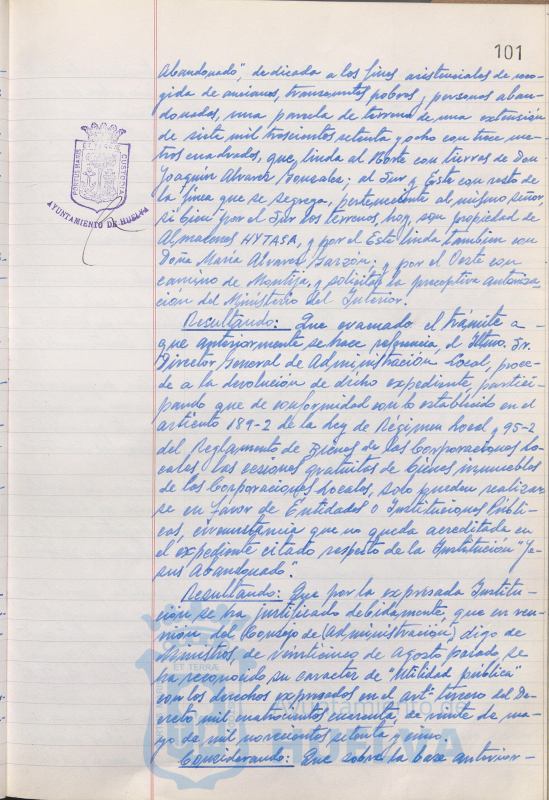 101
Abandonado", dedicada a los fines asistenciales de reco-
gida de ancianos, transeuntes pobres y personas aban-
donadas, una parcela de terreno de una extensión
de siete mil trescientos setenta y ocho con trece me-
tros cuadrados, que, linda al Norte con tierras de Don
Joaquin Alvarez Gonzalez; al Sur y Este con resto de
la finca que se segrega, perteneciente al mismo señor,
si bien por el Sur los terrenos, hoy, son propiedad de
Almacenes HYTASA, y por el Este linda tambien con
Doña Maria Alvarez Garzón; y por el Oeste con
camino de Montija, y solicitar la preceptiva autoriza-
ción del Ministerio del Interior.
Resultando: Que evacuado el trámite a
que anteriormente se hace referencia, el Iltmo. Sr.
Director General de Administración Local, proce-
de a la devolución de dicho expediente, partici-
pando que de conformidad con lo establecido en el
articulo 189-2 de la Ley de Régimen Local y 95-2
del Reglamento de Bienes de las Corporaciones Lo-
cales las cesiones gratuitas de bienes inmuebles
de las Corporaciones Locales, solo pueden realizar-
se en favor de Entidades o Instituciones Públi-
cas, circunstancia que no queda acreditada en
el expediente citado respecto de la Institución "Je-
sus Abandonado".
Resultando: Que por la expresada Institu-
ción se ha justificado debidamente, que en reu-
nión del Consejo de (Administración) digo de
Ministros, de veinticinco de Agosto pasado, se
ha reconocido su caracter de "Utilidad pública"
con los derechos expresados en el artº tercero del De-
creto mil cuatrocientos cuarenta, de veinte de ma-
yo de mil novecientos setenta y cinco.
Considerando: Que sobre la base anterior-
AYUNTAMIENTO DE HUELVA
PORTUS MARIS
CUSTODIA
ET TERRÆ
Ayuntamiento de
HUELVA